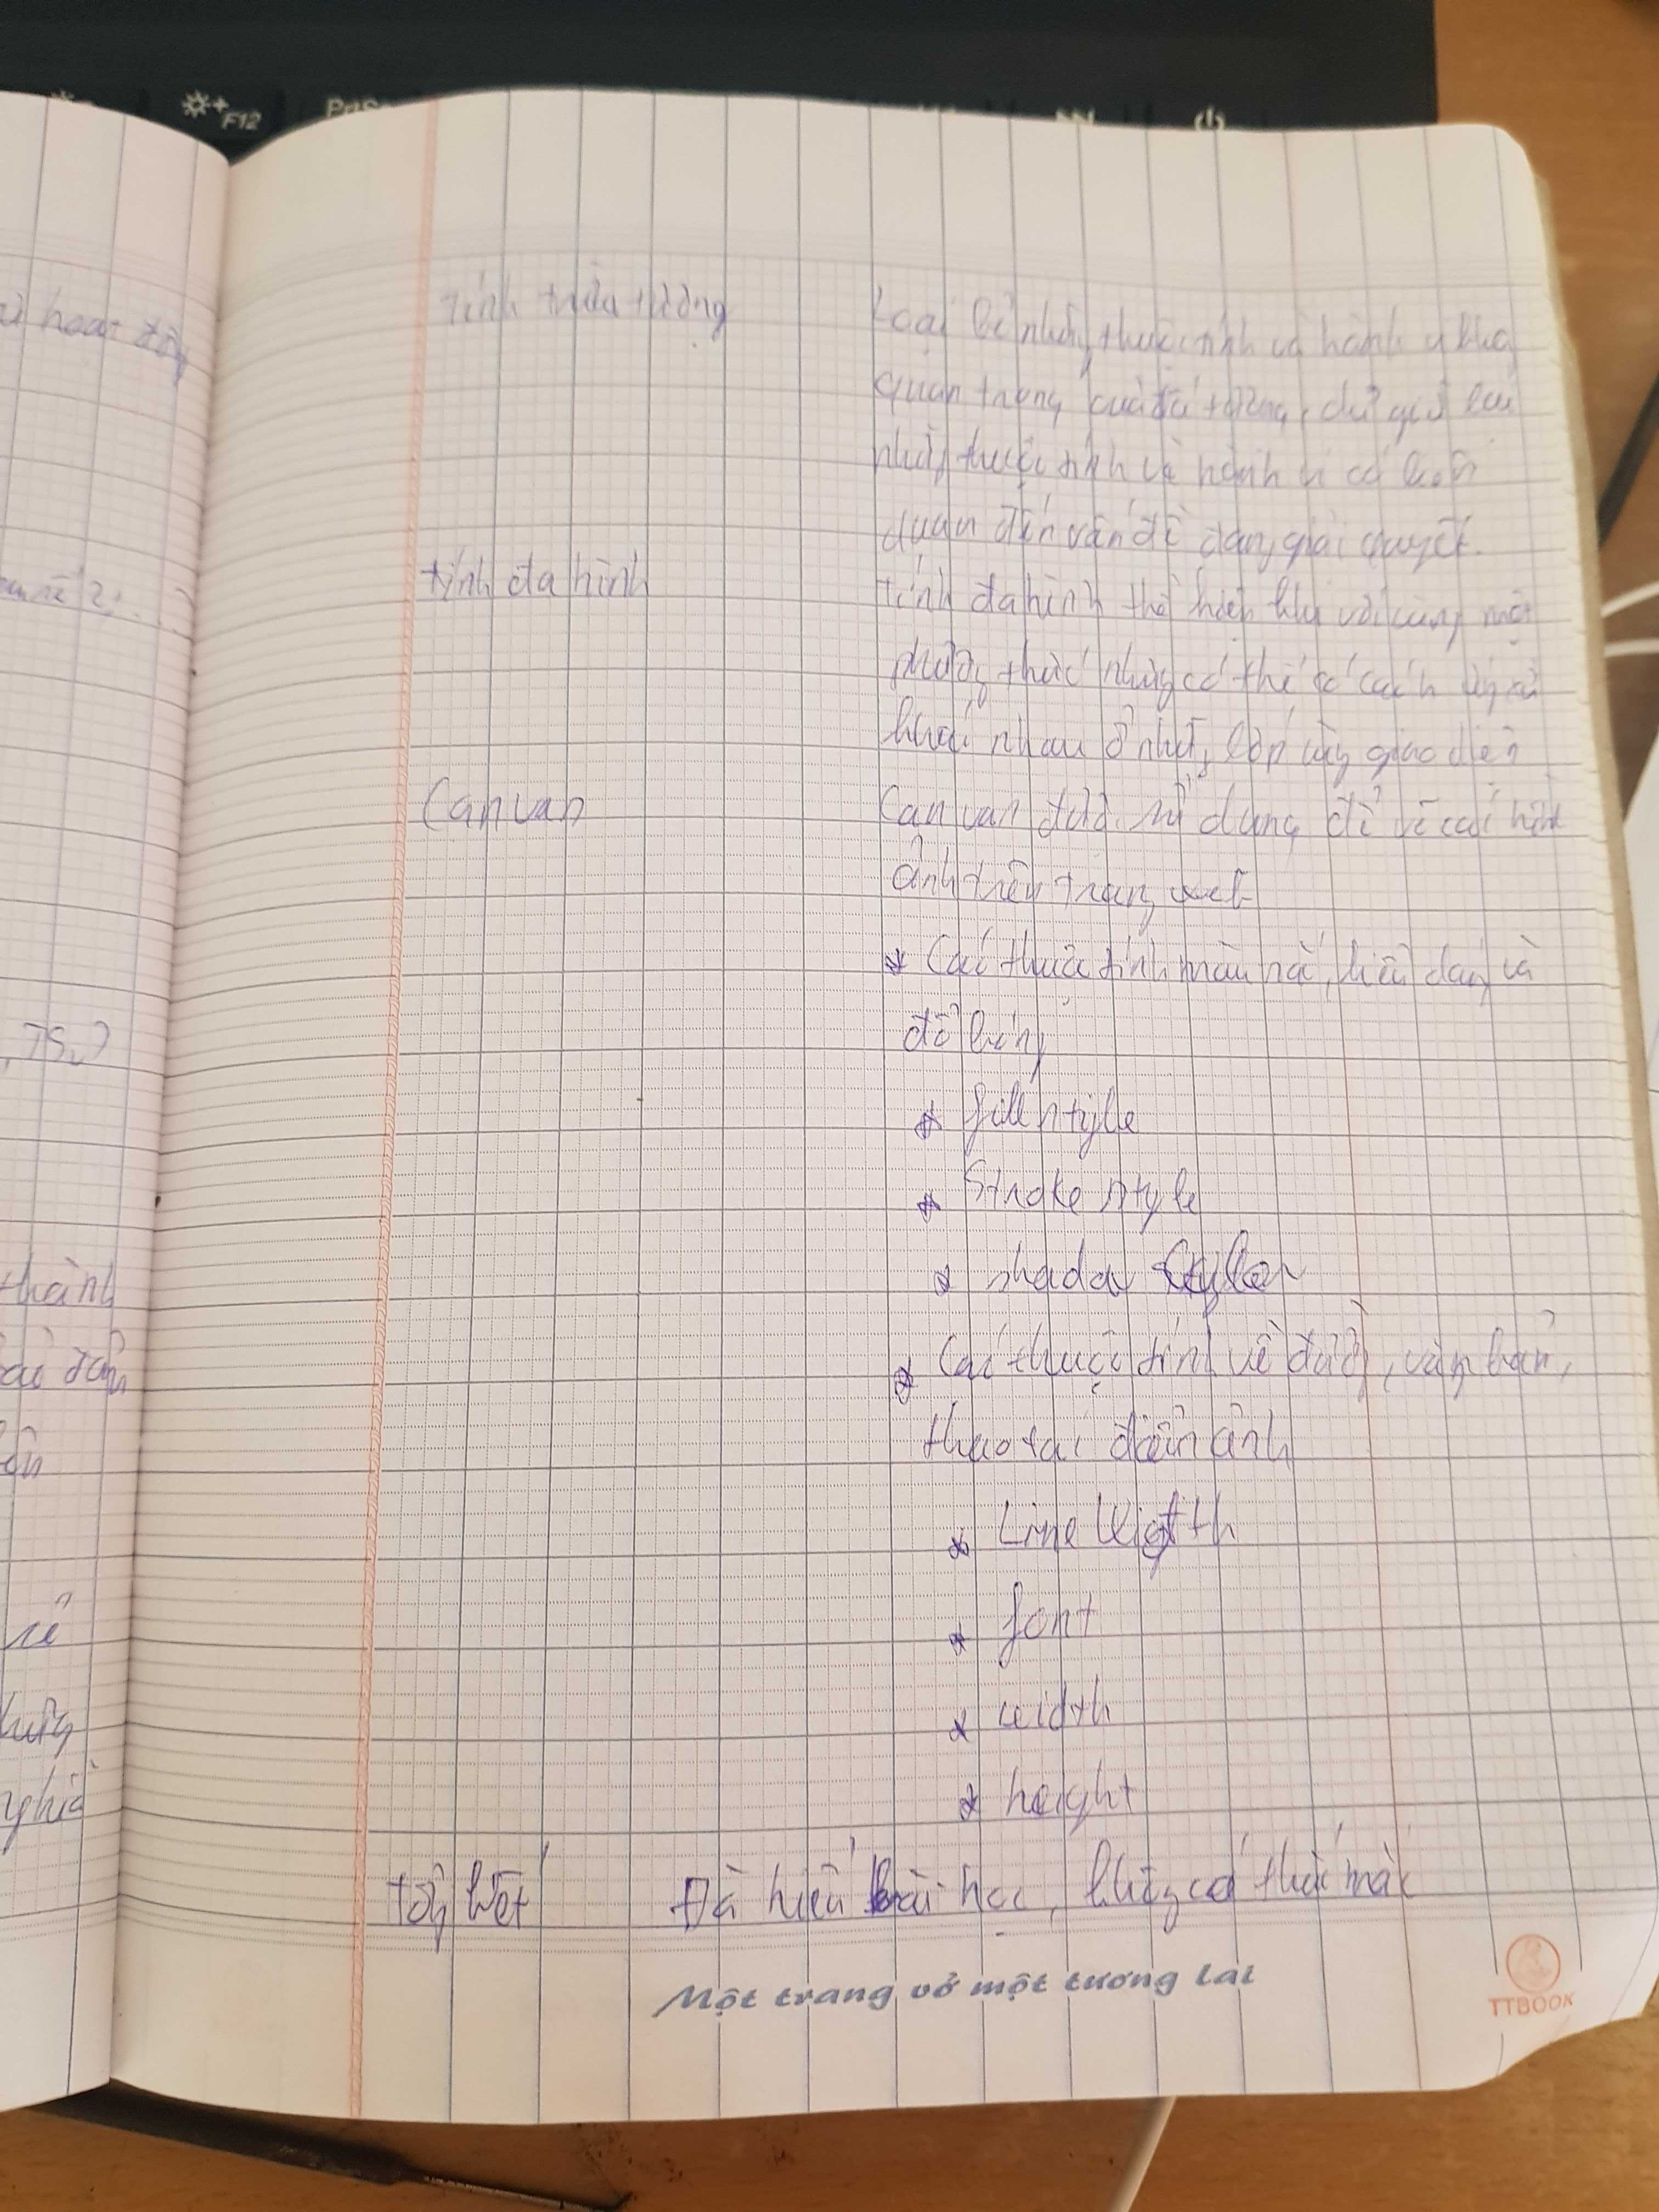 F12
tính trừu tượng
Loại bỏ những thuộc tính và hành vi không
quan trọng của đối tượng, chỉ giữ lại
những thuộc tính và hành vi có liên
quan đến vấn đề đang giải quyết.
tính đa hình
tính đa hình thể hiện khi với cùng một
phương thức nhưng có thể có cách ứng xử
khác nhau ở những lớp cùng giao diện
Canvas
Canvas được sử dụng để vẽ các hình
ảnh trên trang web
* Các thuộc tính màu sắc, kiểu dáng và
đổ bóng
* fill style
* Stroke style
* shadow
* Các thuộc tính về đường, văn bản,
thao tác điểm ảnh
* Line Width
* font
* width
* height
tổng kết
Đã hiểu bài học, không có thắc mắc
Một trang vở một tương lai
TTBOOK
hoạt động
thành
nghĩa